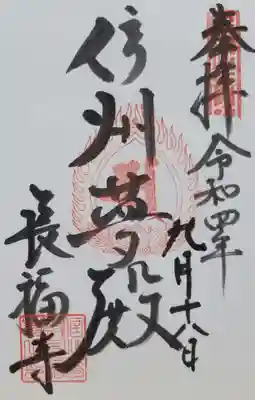 奉拝 令和四年
九月十八日
信州夢殿
長福寺